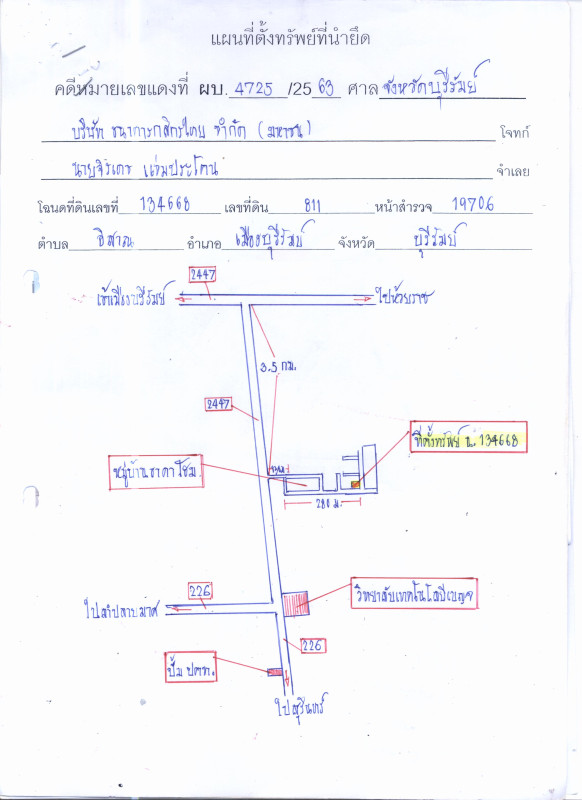 แผนที่ตั้งทรัพย์ที่นำยึด
คดีหมายเลขแดงที่ ผบ. 4725 /25 63 ศาล จังหวัดบุรีรัมย์
บริษัท ธนาคารกสิกรไทย จำกัด (มหาชน) โจทก์
นายจิรเดช แช่มประโคน จำเลย
โฉนดที่ดินเลขที่ 134668 เลขที่ดิน 811 หน้าสำรวจ 19706
ตำบล อิสาณ อำเภอ เมืองบุรีรัมย์ จังหวัด บุรีรัมย์
2447
เข้าเมืองบุรีรัมย์ ไปห้วยราช
3.5 กม.
2447
ที่ตั้งทรัพย์ ฉ. 134668
หมู่บ้านธาดาโฮม
280 ม.
226
วิทยาลัยเทคโนโลยี
ไปลำปลายมาศ
226
ปั้ม ปตท.
ไปสุรินทร์